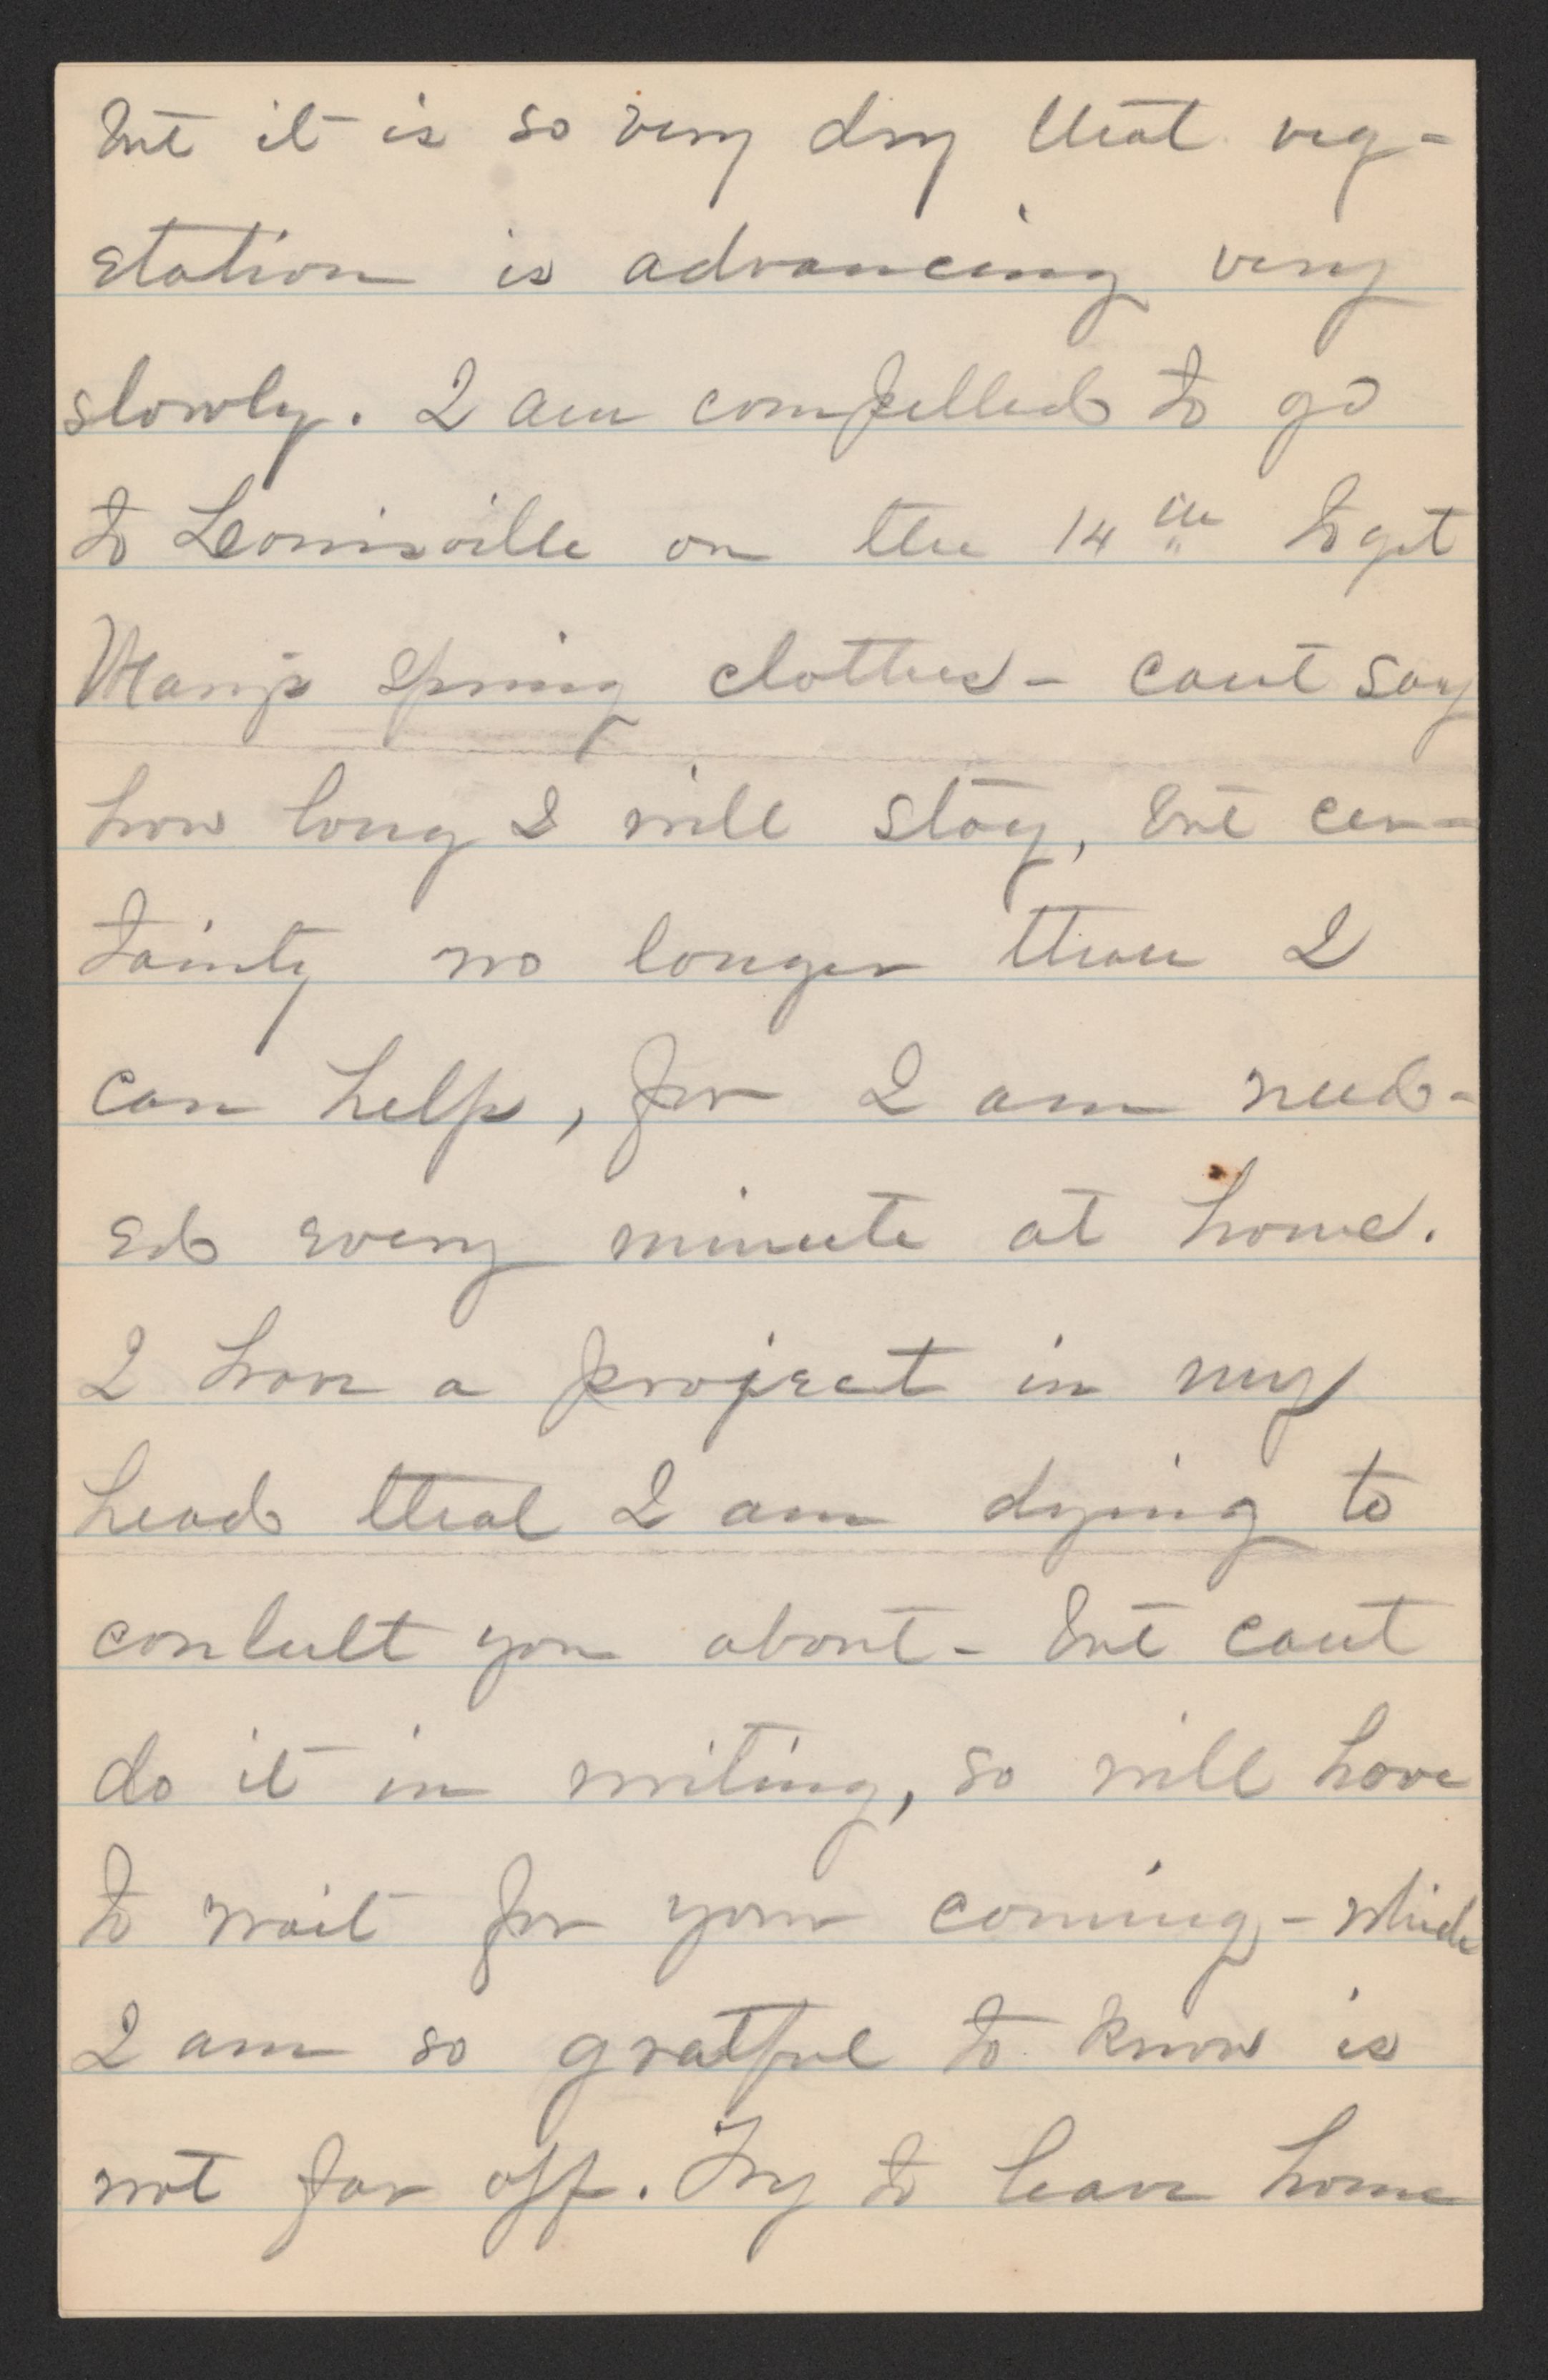 but it is so very dry that veg-
etation is advancing very
slowly. I am compelled to go
to Louisville on the 14th to get
Mary's spring clothes - cant say
how long I will stay, but cer-
tainty no longer than I
can help, for I am need-
ed every minute at home.
I have a project in my
head that I am dying to
consult you about - but cant
do it in writing, so will have
to wait for your coming - which
I am so gratful to know is
not far off. Try to leave home